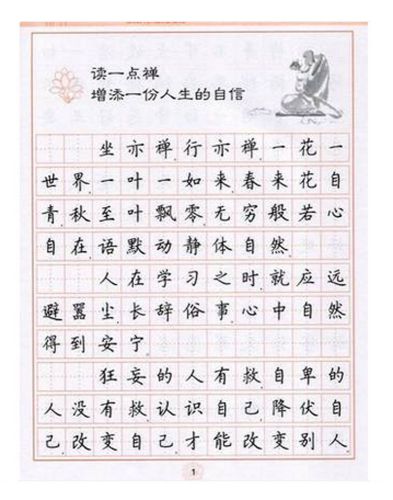 读一点禅
增添一份人生的自信
坐亦禅,行亦禅,一花一
世界,一叶一如来,春来花自
青,秋至叶飘零,无穷般若心
自在,语默动静体自然.
人在学习之时,就应远
避嚣尘,长辞俗事,心中自然
得到安宁.
狂妄的人有救,自卑的
人没有救,认识自己,降伏自
己,改变自己,才能改变别人.
1